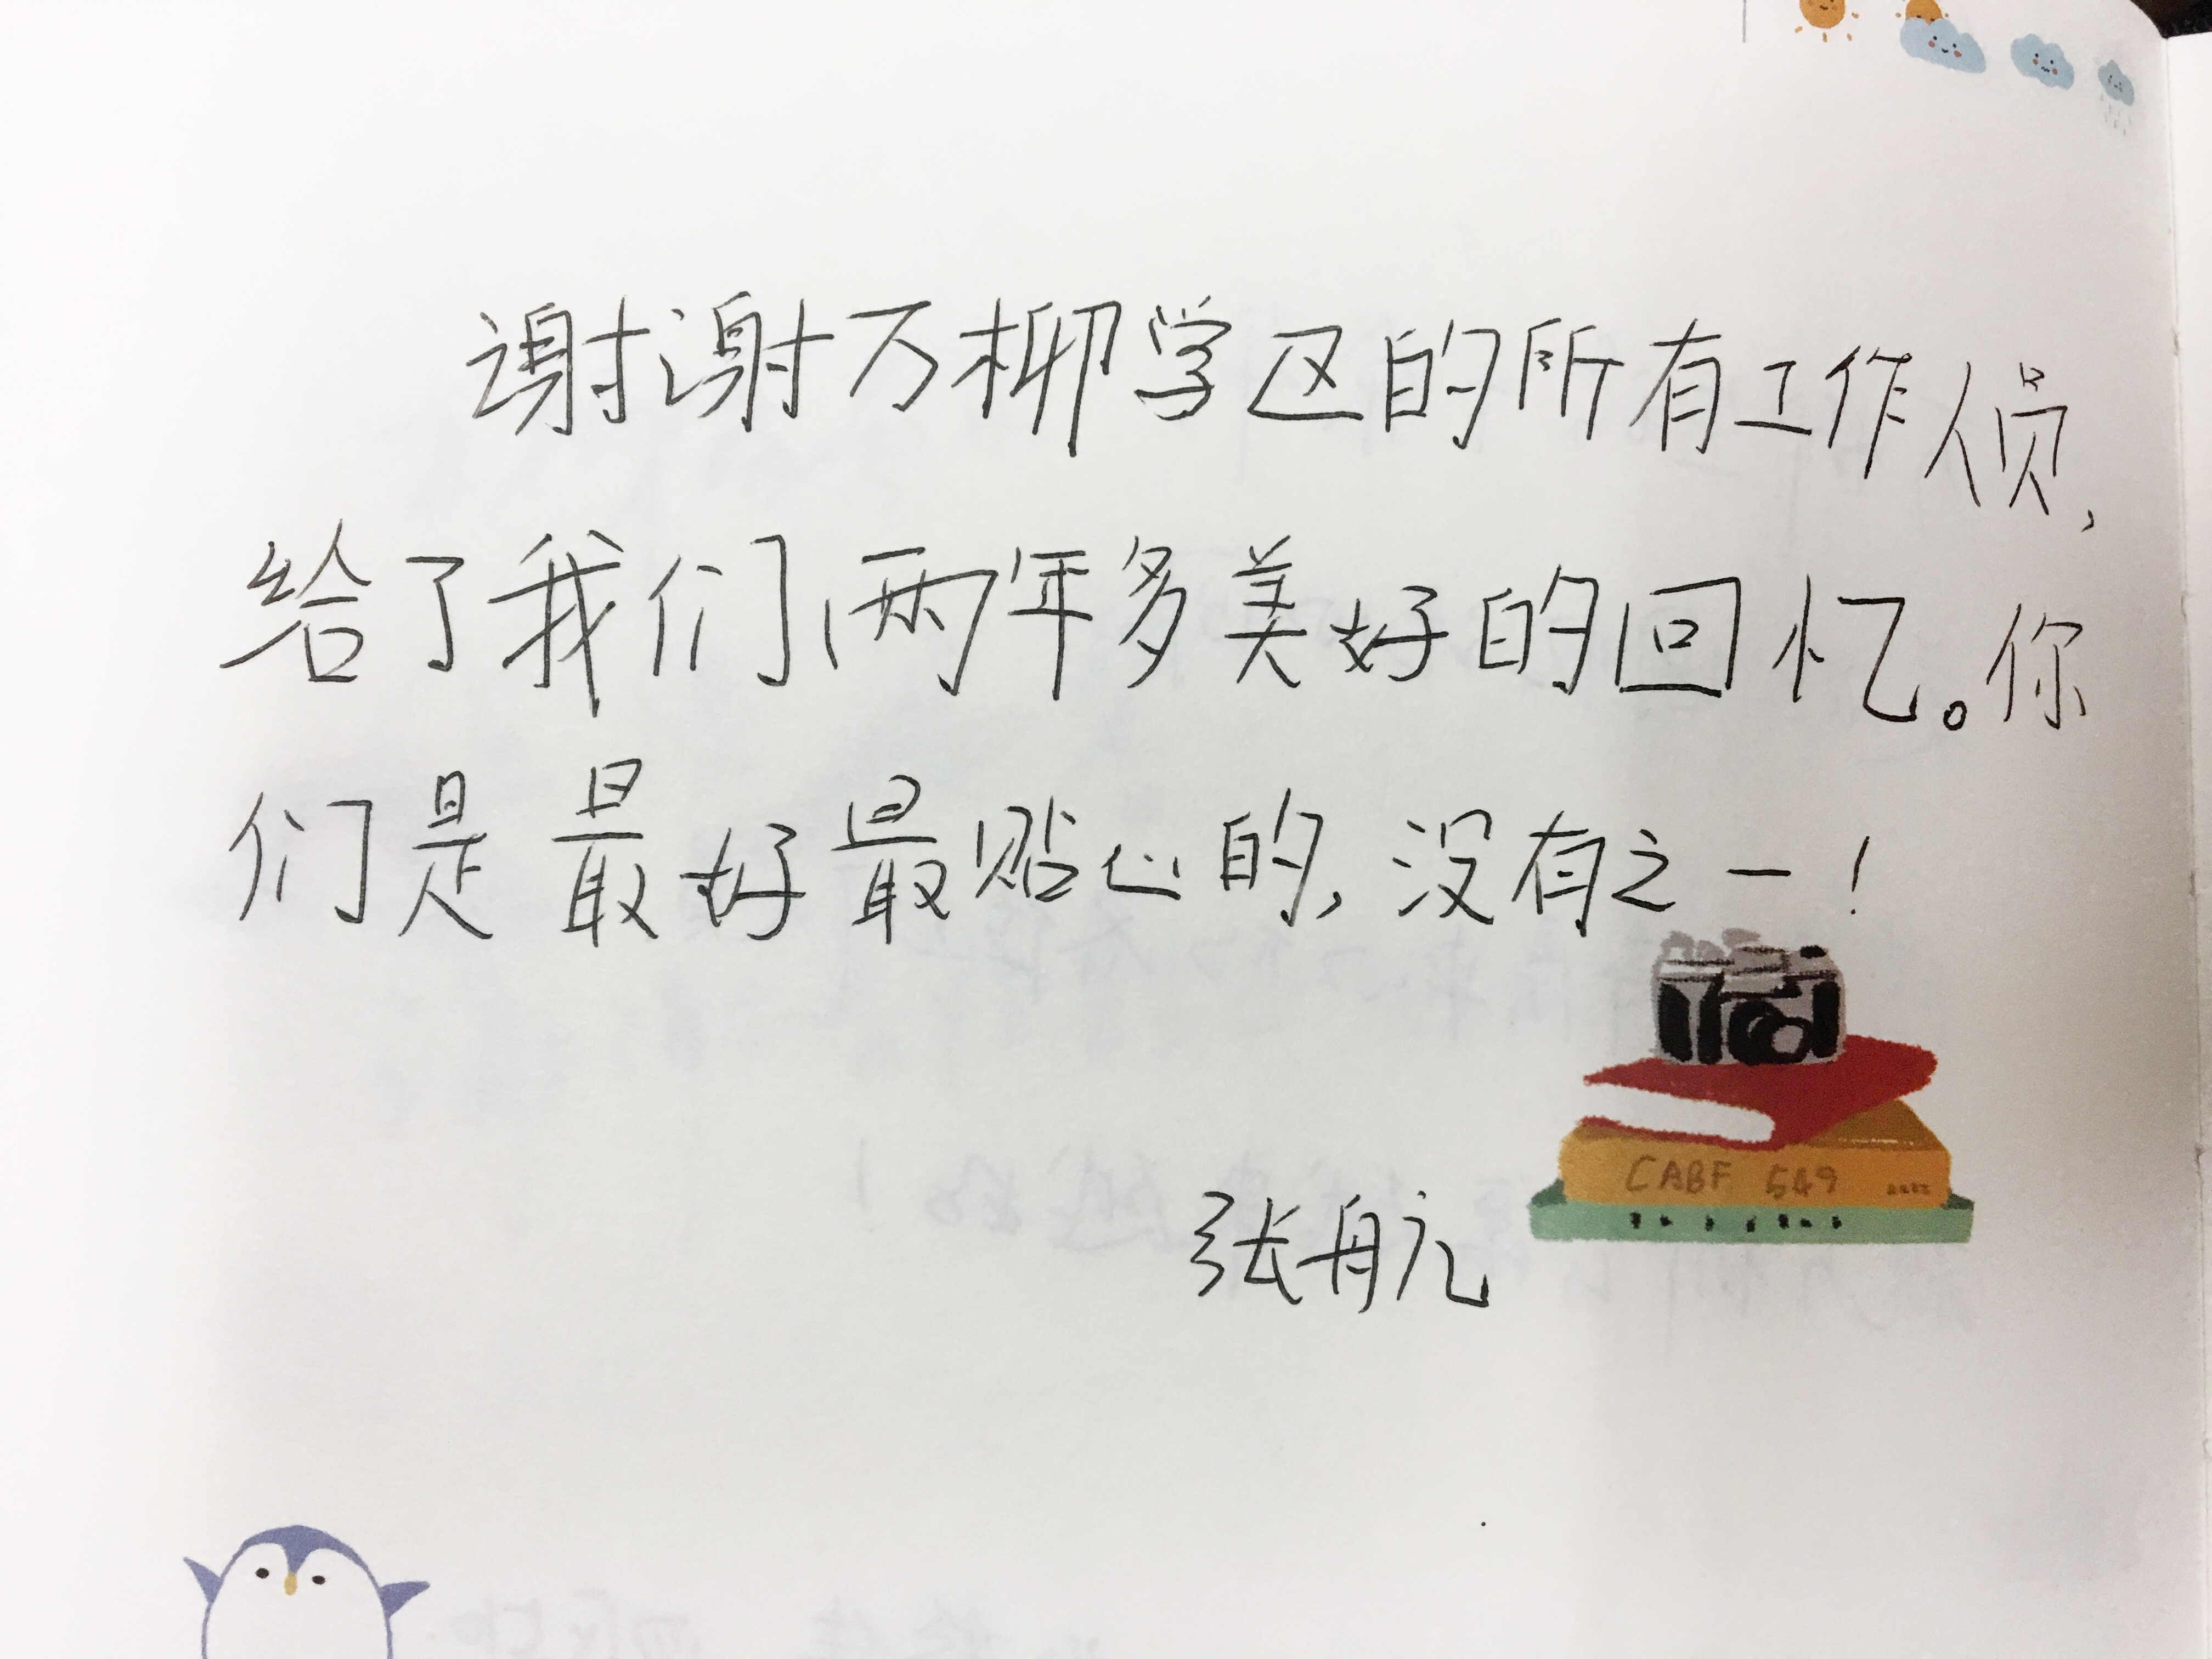 谢谢万柳学区的所有工作人员,
给了我们两年多美好的回忆。你
们是最好最贴心的,没有之一!
CABF 549
张航